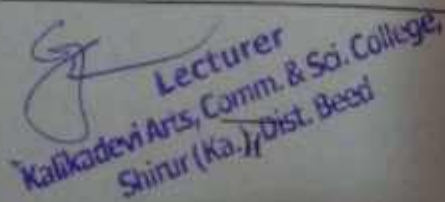 Lecturer
Kalikadevi Arts, Comm. & Sci. College,
Shirur (Ka.), Dist. Beed